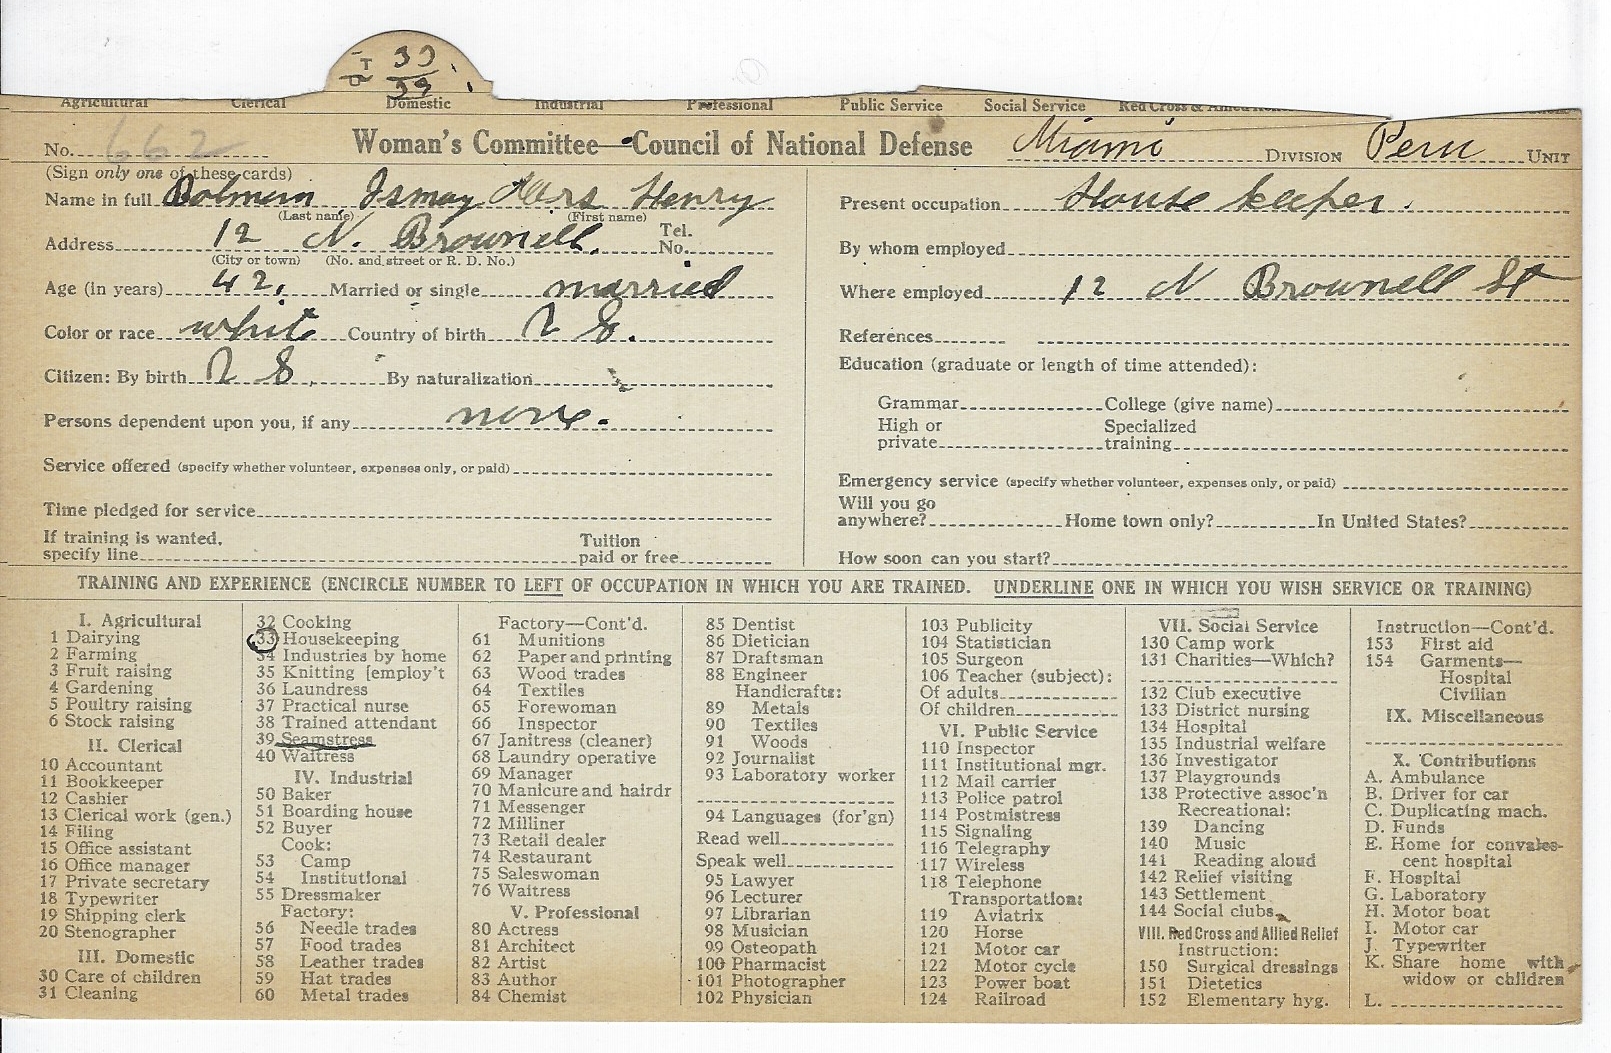 33
39
Agricultural Clerical Domestic Industrial Professional Public Service Social Service Red Cross & Allied
No. 662 Woman's Committee—Council of National Defense Miami DIVISION Peru UNIT
(Sign only one of these cards)
Name in full Bolman Ismay Mrs Henry
(Last name) (First name)
Address 12 N. Brownell. Tel. No.
(City or town) (No. and street or R. D. No.)
Age (in years) 42. Married or single married
Color or race white Country of birth U S.
Citizen: By birth U S. By naturalization
Persons dependent upon you, if any none.
Service offered (specify whether volunteer, expenses only, or paid)
Time pledged for service
If training is wanted, specify line Tuition paid or free
Present occupation House keeper.
By whom employed
Where employed 12 N Brownell St
References
Education (graduate or length of time attended):
Grammar College (give name)
High or private Specialized training
Emergency service (specify whether volunteer, expenses only, or paid)
Will you go anywhere? Home town only? In United States?
How soon can you start?
TRAINING AND EXPERIENCE (ENCIRCLE NUMBER TO LEFT OF OCCUPATION IN WHICH YOU ARE TRAINED. UNDERLINE ONE IN WHICH YOU WISH SERVICE OR TRAINING)
I. Agricultural
1 Dairying
2 Farming
3 Fruit raising
4 Gardening
5 Poultry raising
6 Stock raising
II. Clerical
10 Accountant
11 Bookkeeper
12 Cashier
13 Clerical work (gen.)
14 Filing
15 Office assistant
16 Office manager
17 Private secretary
18 Typewriter
19 Shipping clerk
20 Stenographer
III. Domestic
30 Care of children
31 Cleaning
32 Cooking
33 Housekeeping
34 Industries by home
35 Knitting [employ't
36 Laundress
37 Practical nurse
38 Trained attendant
39 Seamstress
40 Waitress
IV. Industrial
50 Baker
51 Boarding house
52 Buyer
Cook:
53 Camp
54 Institutional
55 Dressmaker
Factory:
56 Needle trades
57 Food trades
58 Leather trades
59 Hat trades
60 Metal trades
Factory—Cont'd.
61 Munitions
62 Paper and printing
63 Wood trades
64 Textiles
65 Forewoman
66 Inspector
67 Janitress (cleaner)
68 Laundry operative
69 Manager
70 Manicure and hairdr
71 Messenger
72 Milliner
73 Retail dealer
74 Restaurant
75 Saleswoman
76 Waitress
V. Professional
80 Actress
81 Architect
82 Artist
83 Author
84 Chemist
85 Dentist
86 Dietician
87 Draftsman
88 Engineer
Handicrafts:
89 Metals
90 Textiles
91 Woods
92 Journalist
93 Laboratory worker
94 Languages (for'gn)
Read well
Speak well
95 Lawyer
96 Lecturer
97 Librarian
98 Musician
99 Osteopath
100 Pharmacist
101 Photographer
102 Physician
103 Publicity
104 Statistician
105 Surgeon
106 Teacher (subject):
Of adults
Of children
VI. Public Service
110 Inspector
111 Institutional mgr.
112 Mail carrier
113 Police patrol
114 Postmistress
115 Signaling
116 Telegraphy
117 Wireless
118 Telephone
Transportation:
119 Aviatrix
120 Horse
121 Motor car
122 Motor cycle
123 Power boat
124 Railroad
VII. Social Service
130 Camp work
131 Charities—Which?
132 Club executive
133 District nursing
134 Hospital
135 Industrial welfare
136 Investigator
137 Playgrounds
138 Protective assoc'n
Recreational:
139 Dancing
140 Music
141 Reading aloud
142 Relief visiting
143 Settlement
144 Social clubs
VIII. Red Cross and Allied Relief
Instruction:
150 Surgical dressings
151 Dietetics
152 Elementary hyg.
Instruction—Cont'd.
153 First aid
154 Garments—
Hospital
Civilian
IX. Miscellaneous
X. Contributions
A. Ambulance
B. Driver for car
C. Duplicating mach.
D. Funds
E. Home for convales-
cent hospital
F. Hospital
G. Laboratory
H. Motor boat
I. Motor car
J. Typewriter
K. Share home with
widow or children
L.